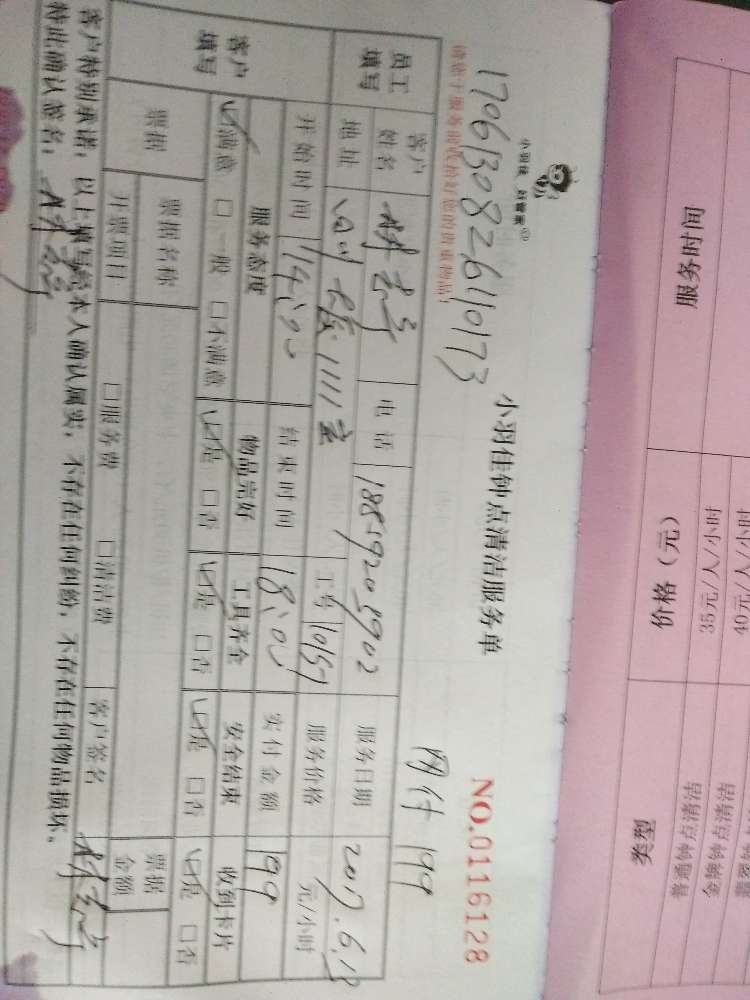 小羽佳，好管家
小羽佳钟点清洁服务单
NO.0116128
1706130826110173
网付 199
请给于服务前收拾好您的贵重物品！
员工填写
客户姓名
电话
18859205902
服务日期
2017.6.13
地址
1111室
工号
10151
服务价格
元/小时
开始时间
14:00
结束时间
18:00
实付金额
199
客户填写
服务态度
物品完好
工具齐全
安全结束
收到卡片
满意 □一般 □不满意
是 □否
是 □否
是 □否
是 □否
票据
票据名称
票据金额
开票项目
□服务费 □清洁费
客户签名
客户特别承诺：以上填写经本人确认属实，不存在任何纠纷，不存在任何物品损坏。
特此确认签名：
服务时间
价格（元）
类型
35元/人/小时
普通钟点清洁
40元/人/小时
金牌钟点清洁